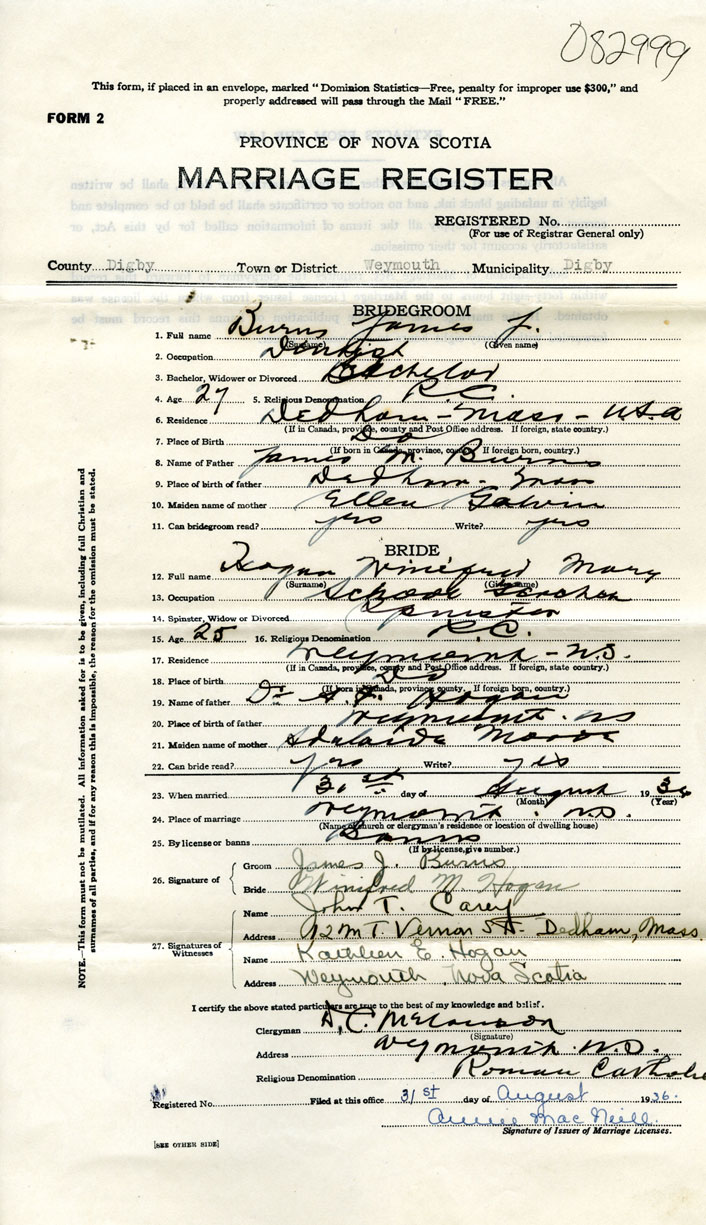 082999
This form, if placed in an envelope, marked “Dominion Statistics—Free, penalty for improper use $300,” and
properly addressed will pass through the Mail “FREE.”
FORM 2
PROVINCE OF NOVA SCOTIA
MARRIAGE REGISTER
REGISTERED No.
(For use of Registrar General only)
County Digby Town or District Weymouth Municipality Digby
BRIDEGROOM
1. Full name Burns James J.
(Surname) (Given name)
2. Occupation Dentist
3. Bachelor, Widower or Divorced Bachelor
4. Age 27 5. Religious Denomination R.C.
6. Residence Dedham - Mass - U.S.A
(If in Canada, province, county and Post Office address. If foreign, state country.)
7. Place of Birth Do
(If born in Canada, province, county, If foreign born, country.)
8. Name of Father James M. Burns
9. Place of birth of father Dedham - Mass
10. Maiden name of mother Ellen Galvin
11. Can bridegroom read? yes Write? yes
BRIDE
12. Full name Hogan Winifred Mary
(Surname) (Given name)
13. Occupation School Teacher
14. Spinster, Widow or Divorced Spinster
15. Age 25 16. Religious Denomination R.C.
17. Residence Weymouth - N.S.
(If in Canada, province, county and Post Office address. If foreign, state country.)
18. Place of birth Do
(If born in Canada, province, county, If foreign born, country.)
19. Name of father Dr Hogan
20. Place of birth of father Weymouth. NS
21. Maiden name of mother Adelaide Moore
22. Can bride read? yes Write? yes
23. When married 31st day of August 1936
(Month) (Year)
24. Place of marriage Weymouth. N.S.
(Name of church or clergyman's residence or location of dwelling house)
25. By license or banns Banns
(If by license, give number.)
26. Signature of
Groom James J. Burns
Bride Winifred M. Hogan
27. Signatures of Witnesses
Name John T. Carey
Address 92 MT. Vernon St. Dedham, Mass.
Name Kathleen E. Hogan
Address Weymouth, Nova Scotia
I certify the above stated particulars are true to the best of my knowledge and belief.
Clergyman
(Signature)
Address Weymouth N.S.
Religious Denomination Roman Catholic
Registered No. Filed at this office 31st day of August 1936.
Annie MacNeill.
Signature of Issuer of Marriage Licenses.
[SEE OTHER SIDE]
NOTE.—This form must not be mutilated. All information asked for is to be given, including full Christian and
surnames of all parties, and if for any reason this is impossible, the reason for the omission must be stated.